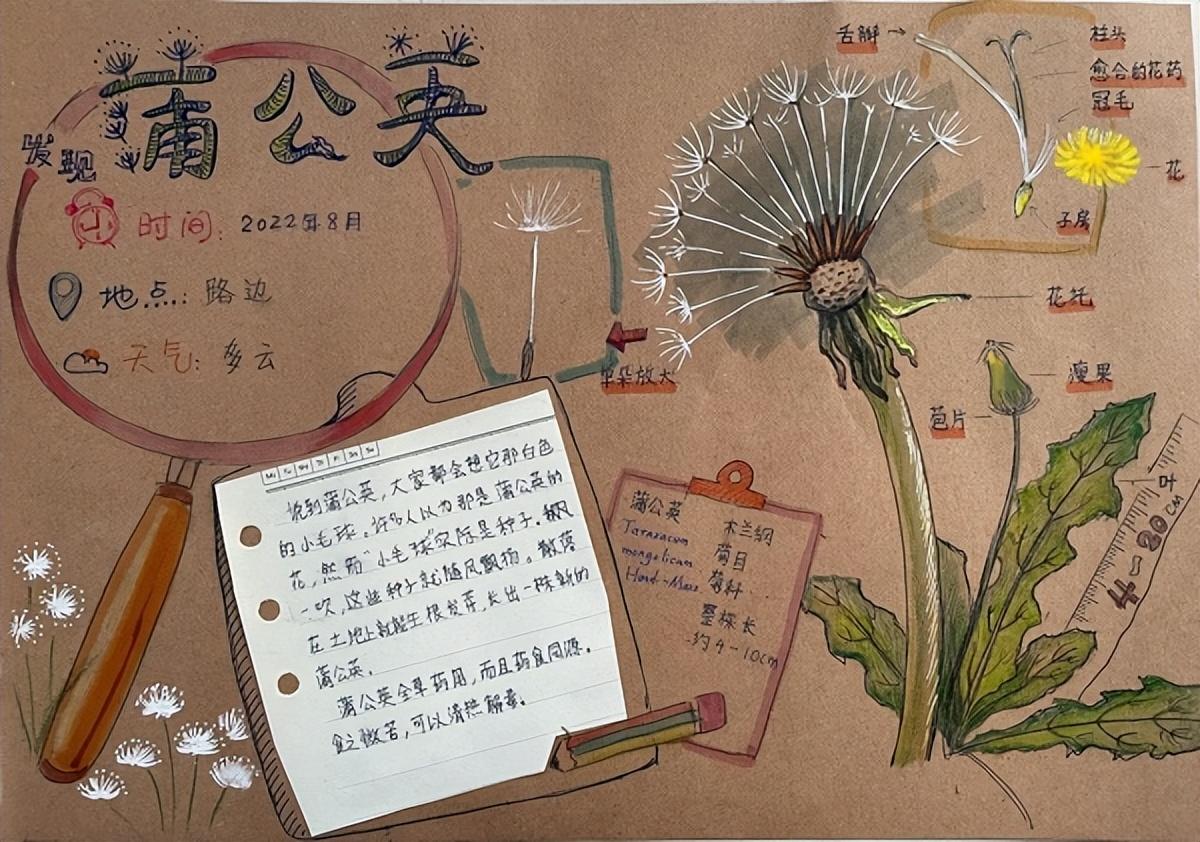 发现
蒲公英
时间: 2022年8月
地点: 路边
天气: 多云
单朵放大
舌瓣
柱头
愈合的花药
冠毛
花
子房
花托
瘦果
苞片
叶
4-20cm
说到蒲公英,大家都会想它那白色
的小毛球。许多人以为那是蒲公英的
花,然而"小毛球"实际是种子。被风
一吹,这些种子就随风飘扬。散落
在土地上就能生根发芽,长出一株新的
蒲公英。
蒲公英全草药用,而且药食同源。
食之微苦,可以清热解毒。
蒲公英
Taraxacum
mongolicum
Hand-Mazz
木兰纲
菊目
菊科...
整株长
约4-10cm